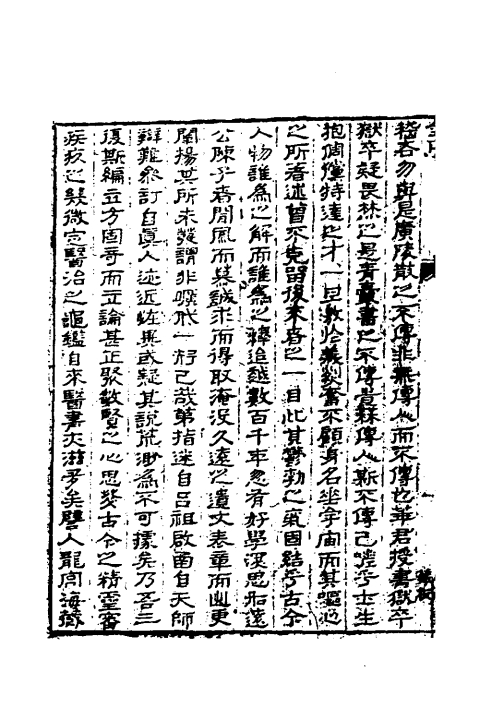 嵇吞勿與是廣陵散之不傳非無傳人而不傳也華君授書獄卒
獄卒疑畏焚之是青囊書之不傳豈無傳人斯不傳已噫乎士生
抱倜儻特達之才一旦激於義氣奮不顧身名坐爭間而其嘔心
之所著述曾不克留後來者之一目此其鬱勃之氣固結乎古今
人物誰為之解而誰為之釋追越數百千年忽有好學深思如遠
公陳子者聞風而慕誠求而得取淹沒久遠之遺文表章而幽更
闡揚其所未發謂非嘆然一舒己哉第指迷自呂祖啟南自天師
辯難參訂自真人迹近炫異或疑其說荒渺為不可據矣乃吾三
復斯編立方固奇而立論甚正聚數賢之心思發古今之精靈審
疾疢之疑微定醫治之龜鑑自來醫書夾滋多矣譬人龍宮海藏